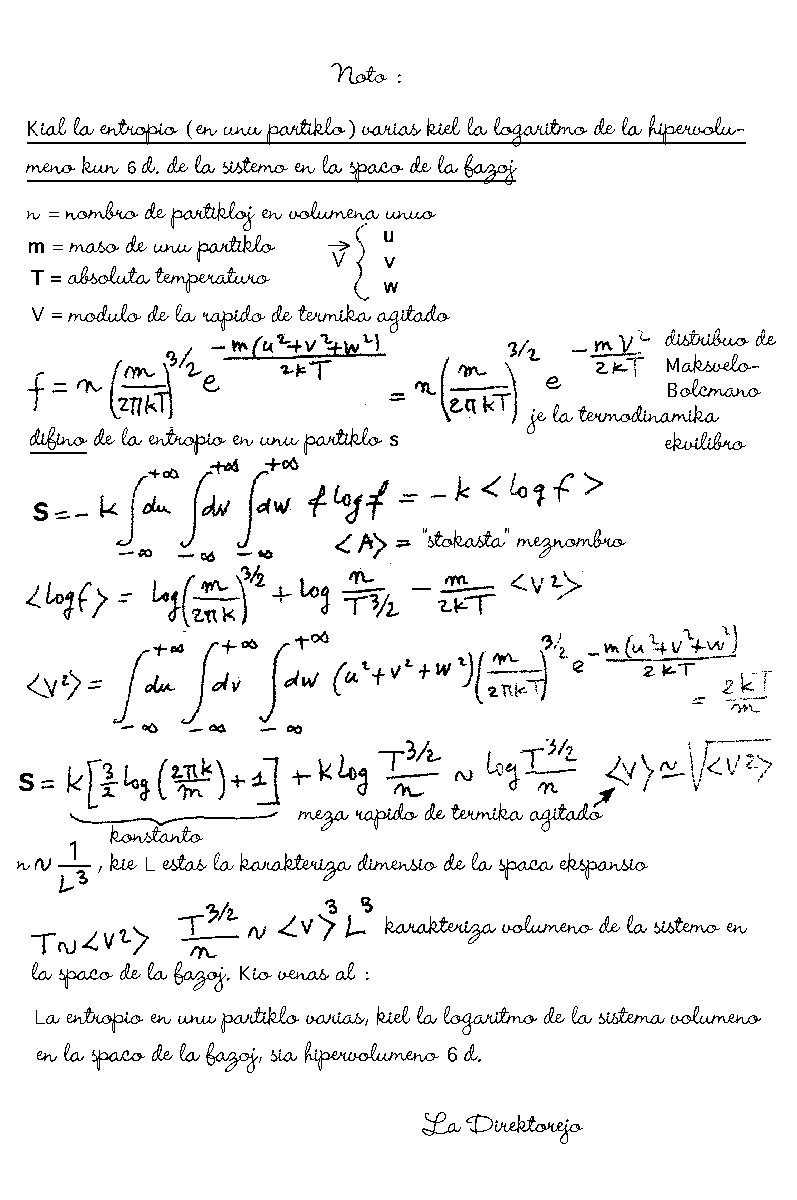 Noto :
Kial la entropio (en unu partiklo) varias kiel la logaritmo de la hipervolu-
meno kun 6 d. de la sistemo en la spaco de la fazoj
n = nombro de partikloj en volumena unuo
m = maso de unu partiklo
T = absoluta temperaturo
V→ { u v w
V = modulo de la rapido de termika agitado
f = n (m/2πkT)^3/2 e^−m(u²+v²+w²)/2kT = n (m/2πkT)^3/2 e^−mV²/2kT
distribuo de
Maksvelo-
Bolcmano
je la termodinamika
ekvilibro
difino de la entropio en unu partiklo s
S = − k ∫_−∞^+∞ du ∫_−∞^+∞ dv ∫_−∞^+∞ dw f log f = − k <log f>
<A> = "stokasta" meznombro
<log f> = log(m/2πk)^3/2 + log n/T^3/2 − m/2kT <V²>
<V²> = ∫_−∞^+∞ du ∫_−∞^+∞ dv ∫_−∞^+∞ dw (u²+v²+w²)(m/2πkT)^3/2 e^−m(u²+v²+w²)/2kT = 2kT/m
S = k[3/2 log(2πk/m) + 1] + k log T^3/2/n ~ log T^3/2/n <V> ≃ √<V²>
meza rapido de termika agitado
konstanto
n ~ 1/L³, kie L estas la karakteriza dimensio de la spaca ekspansio
T ~ <V²> T^3/2/n ~ <V>³ L³ karakteriza volumeno de la sistemo en
la spaco de la fazoj. Kio venas al :
La entropio en unu partiklo varias, kiel la logaritmo de la sistema volumeno
en la spaco de la fazoj, sia hipervolumeno 6 d.
La Direktorejo